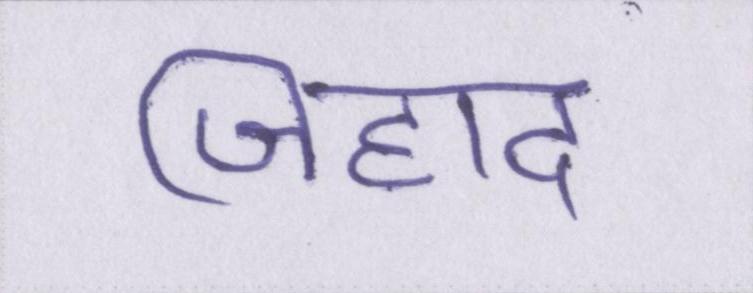 जिहाद